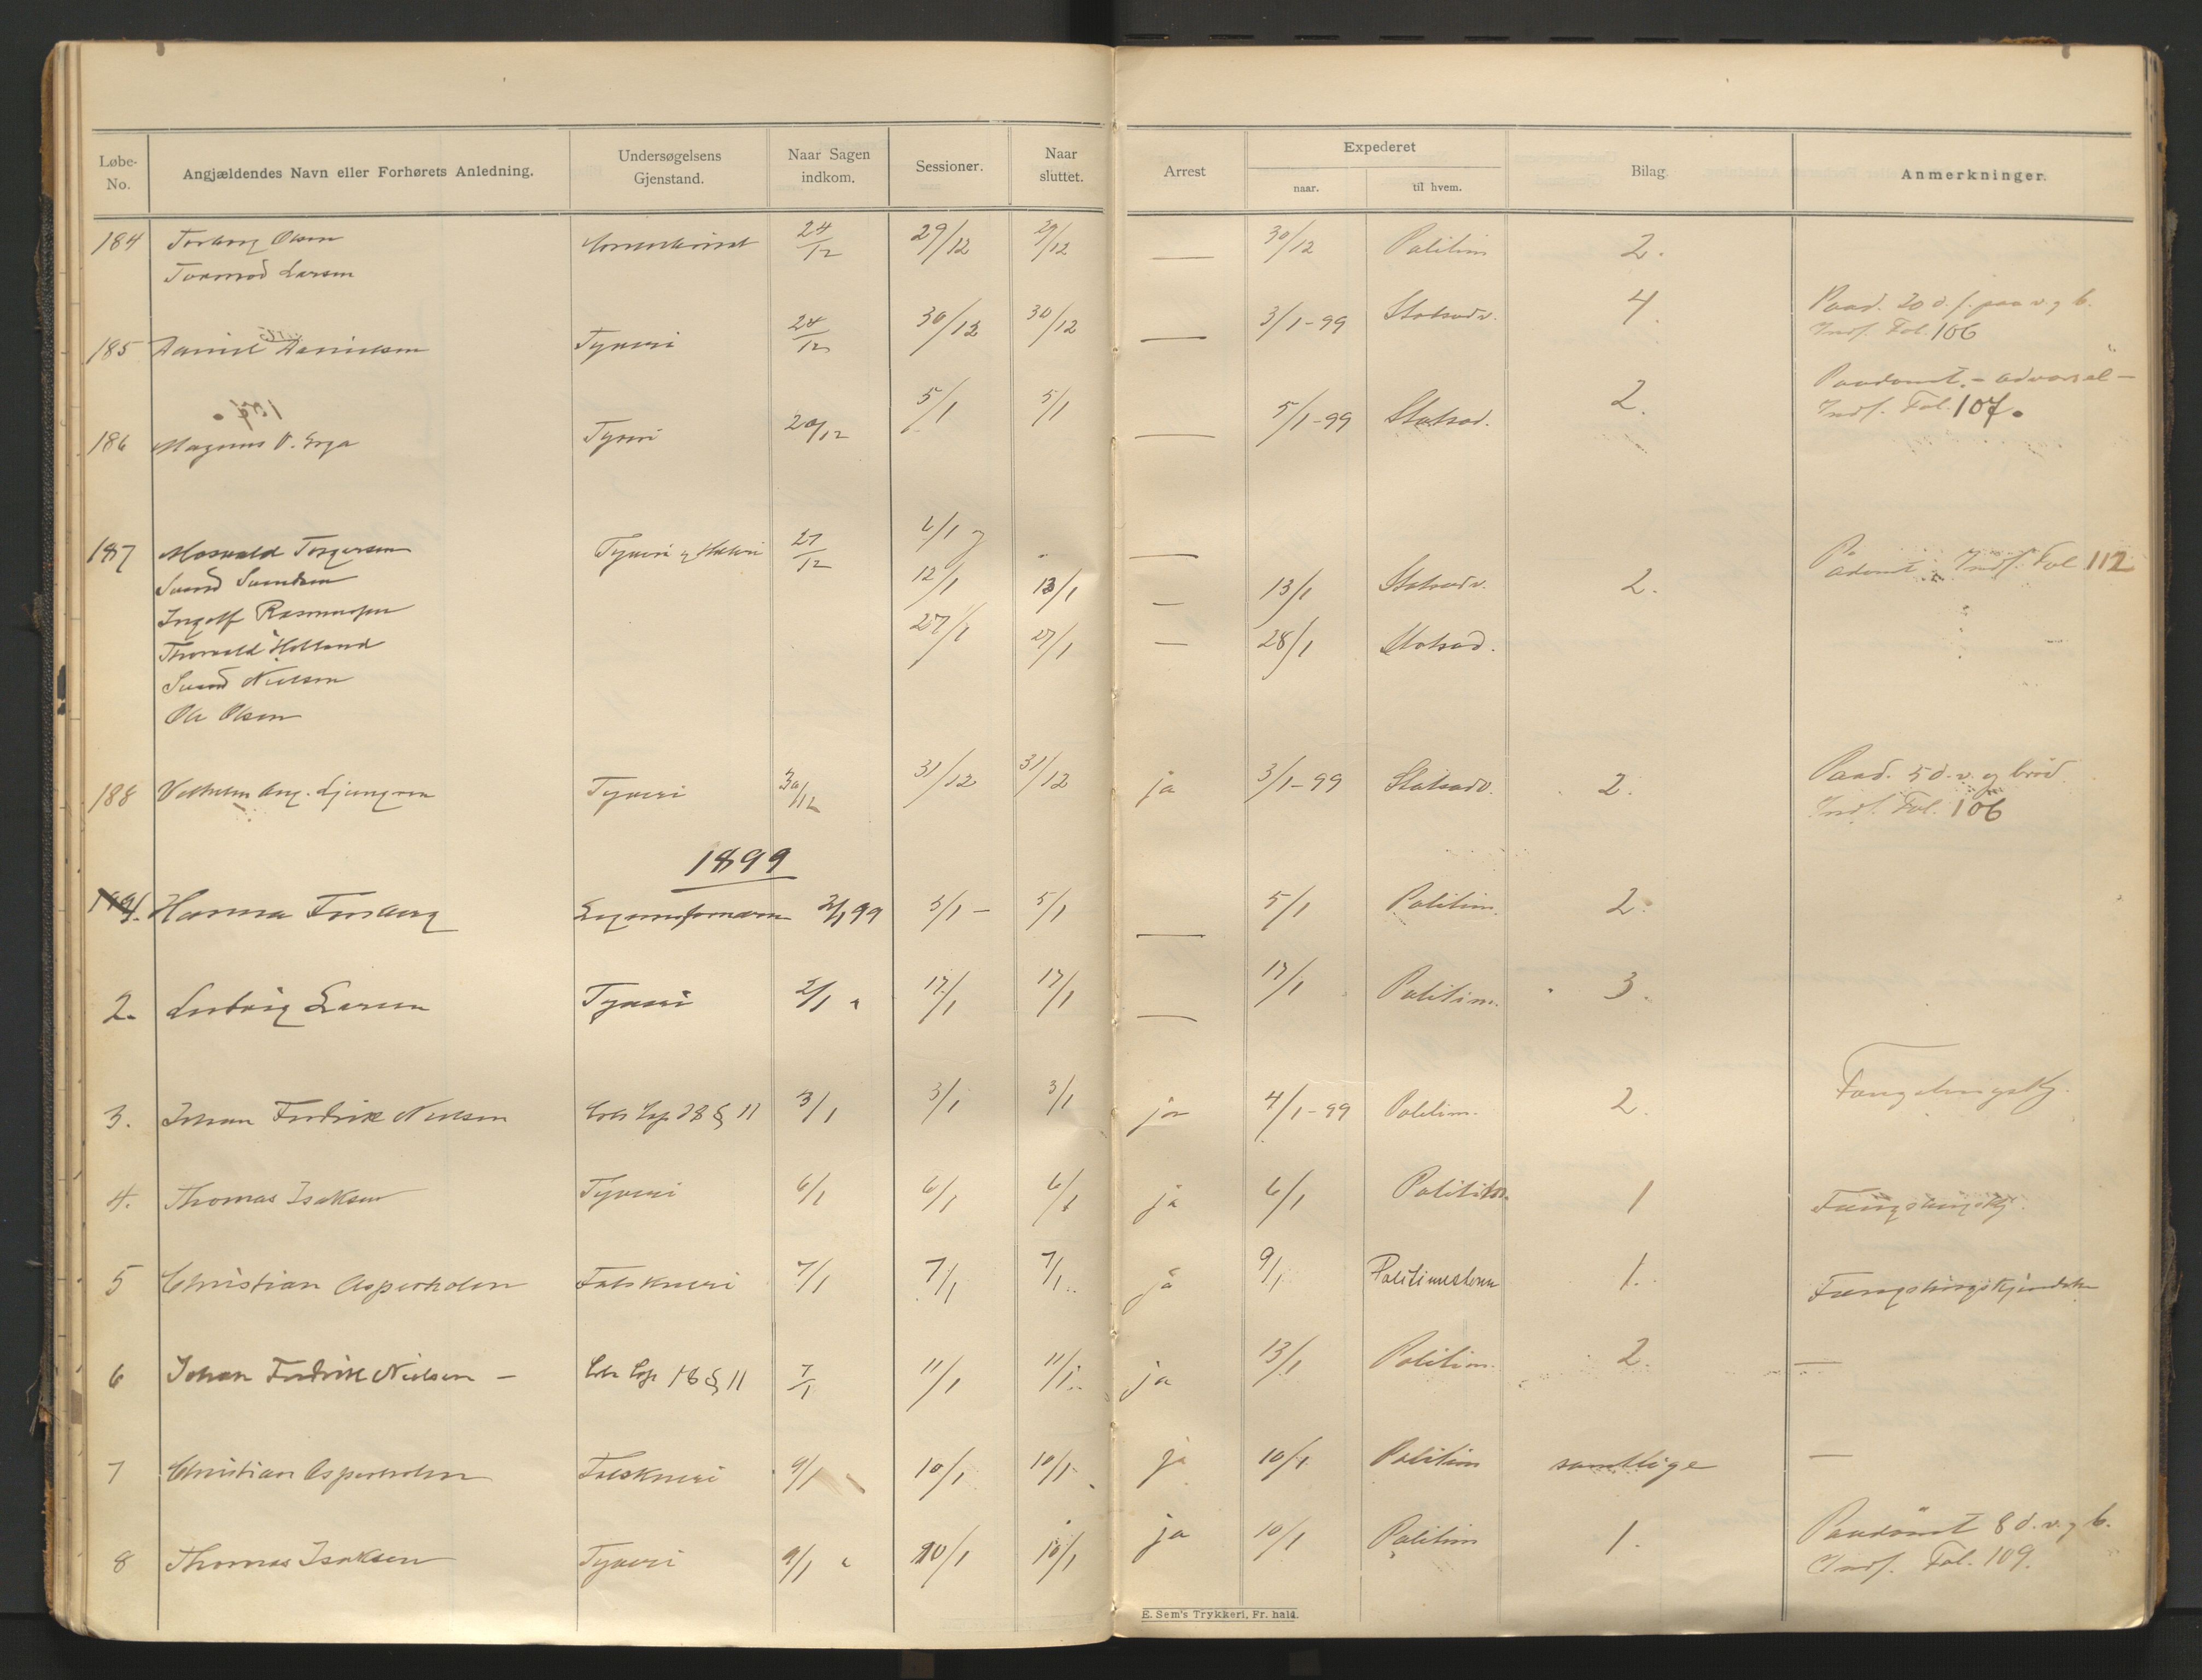 Løbe-No. Angjældendes Navn eller Forhørets Anledning. Undersøgelsens Gjenstand. Naar Sagen indkom. Sessioner. Naar sluttet. Arrest Expederet naar. til hvem. Bilag. Anmerkninger.
184 Olsen 24/12 29/12 29/12 — 30/12 Politim 2.
Larsen
185 Daniel Danielsen Tyveri 24/12 30/12 30/12 — 3/1-99 Statsadv. 4. Paad. 20 d. f. paa v. og b.
Indf. Fol. 106
186 Magnus V. Erga Tyveri 5/1 5/1 — 5/1-99 Statsad. 2. Paadømt - advarsel -
Indf. Fol. 107.
187 Torgersen Tyveri og Hæleri 27/12 6/1 og — Paadømt Indf. Fol 112
Svend Svendsen 12/1 13/1 — 13/1 Statsadv. 2.
Ingolf Rasmussen
Thorvald Holland 27/1 27/1 — 28/1 Statsad.
Svend Nielsen
Ole Olsen
188 Vilhelm Aug. Ljungren Tyveri 30/12 31/12 31/12 ja 3/1-99 Statsadv. 2. Paad. 5 d. v. og brød
Indf. Fol. 106
1899
1. Hanna 2/1 99 5/1 - 5/1 — 5/1 Politim. 2.
2. Ludvig Larsen Tyveri 2/1 " 17/1 17/1 — 17/1 Politim. 3.
3. Johan Fredrik Nielsen § 11 3/1 3/1 3/1 ja 4/1-99 Politim. 2. Fængslingskj.
4. Thomas Isaksen Tyveri 6/1 6/1 6/1 ja 6/1 Politim. 1 Fængslingskj.
5 Christian Asperholen Falskneri 7/1 7/1 7/1 ja 9/1 Politimesteren 1. Fængslingskjendelse
6 Johan Fredrik Nielsen — § 11 7/1 11/1 11/1 ja 13/1 Politim. 2. —
7 Christian Asperholen Falskneri 9/1 10/1 10/1 ja 10/1 Politim samtlige —
8 Thomas Isaksen Tyveri 9/1 " 10/1 10/1 ja 10/1 Politim 1. Paadømt 8 d. v. og b.
Indf. Fol. 109.
E. Sem's Trykkeri, Fr. hald.